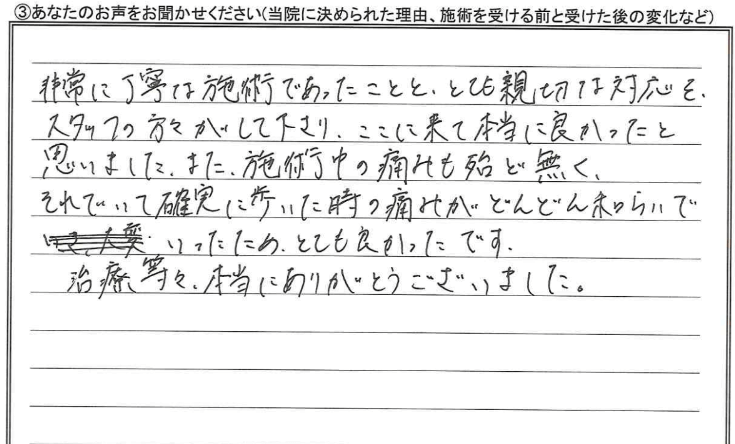 ③あなたのお声をお聞かせください(当院に決められた理由、施術を受ける前と受けた後の変化など)
非常に丁寧な施術であったことと、とても親切な対応を、
スタッフの方々がして下さり、ここに来て本当に良かったと
思いました。また、施術中の痛みも殆ど無く、
それでいて確実に歩いた時の痛みがどんどん和らいで
いったため、とても良かったです。
治療等々、本当にありがとうございました。